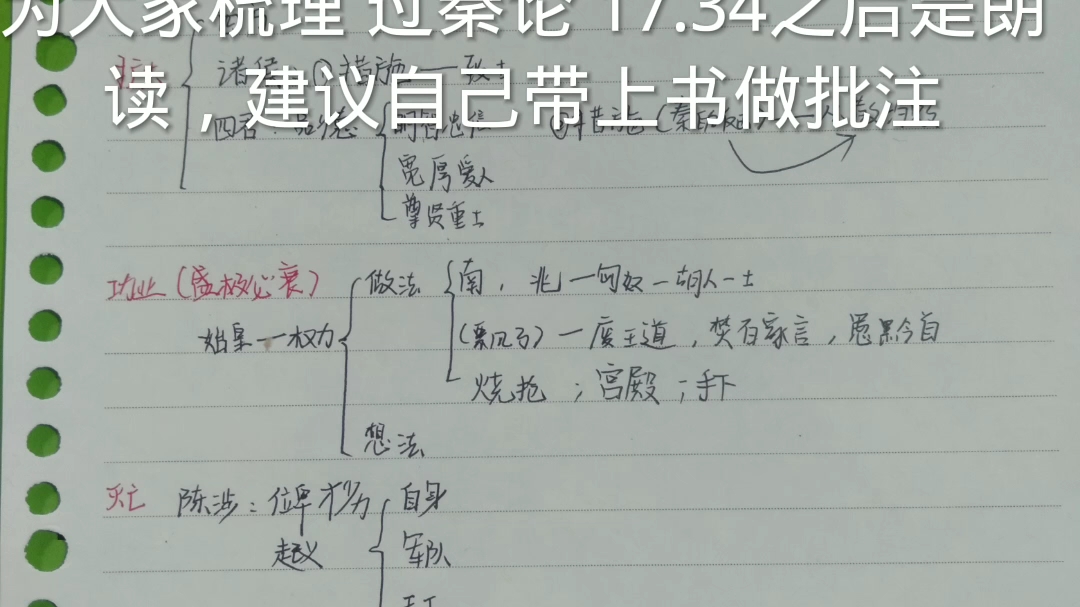 为大家梳理 过秦论 17.34之后是朗
读，建议自己带上书做批注
诸侯：①措施 — 致士
四君：品德 明智忠信 ②措施
宽厚爱人
尊贤重士
功业（盛极必衰） 做法 南，北—匈奴—胡人—士
始皇—权力 — 废王道，焚百家言，愚黔首
烧抢；宫殿；手下
想法
灭亡 陈涉：位卑 才多力 自身
起义 军队